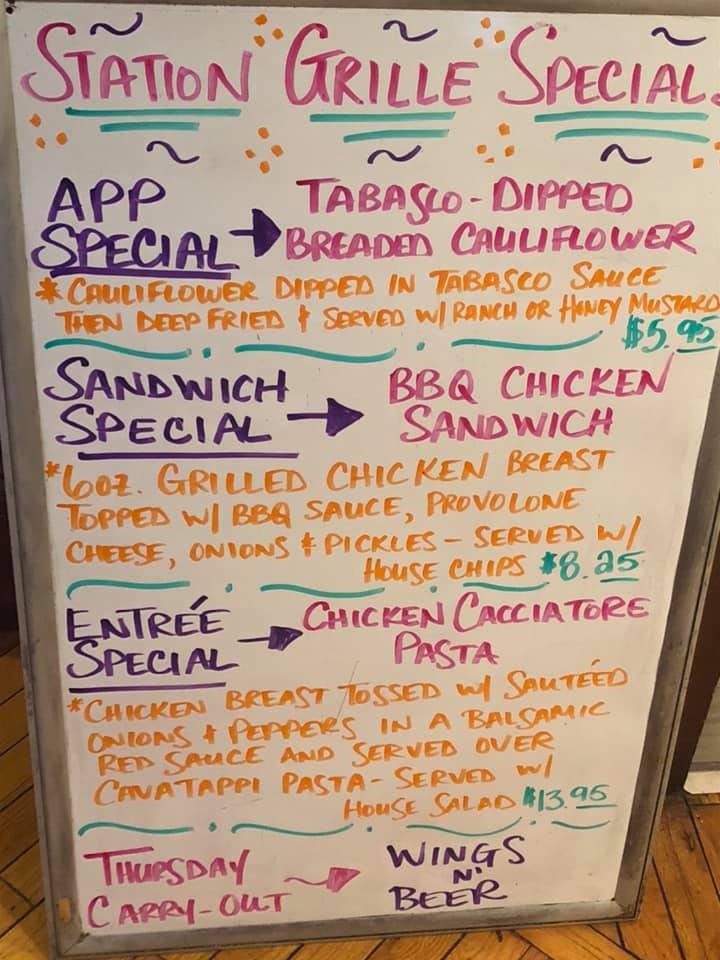 STATION GRILLE SPECIAL
APP SPECIAL → TABASCO-DIPPED BREADED CAULIFLOWER
*CAULIFLOWER DIPPED IN TABASCO SAUCE
THEN DEEP FRIED & SERVED W/ RANCH OR HONEY MUSTARD
$5.95
SANDWICH SPECIAL → BBQ CHICKEN SANDWICH
*6oz. GRILLED CHICKEN BREAST
TOPPED W/ BBQ SAUCE, PROVOLONE
CHEESE, ONIONS & PICKLES - SERVED W/
HOUSE CHIPS $8.25
ENTRÉE SPECIAL → CHICKEN CACCIATORE PASTA
*CHICKEN BREAST TOSSED W/ SAUTÉED
ONIONS & PEPPERS IN A BALSAMIC
RED SAUCE AND SERVED OVER
CAVATAPPI PASTA - SERVED W/
HOUSE SALAD $13.95
THURSDAY CARRY-OUT → WINGS N' BEER